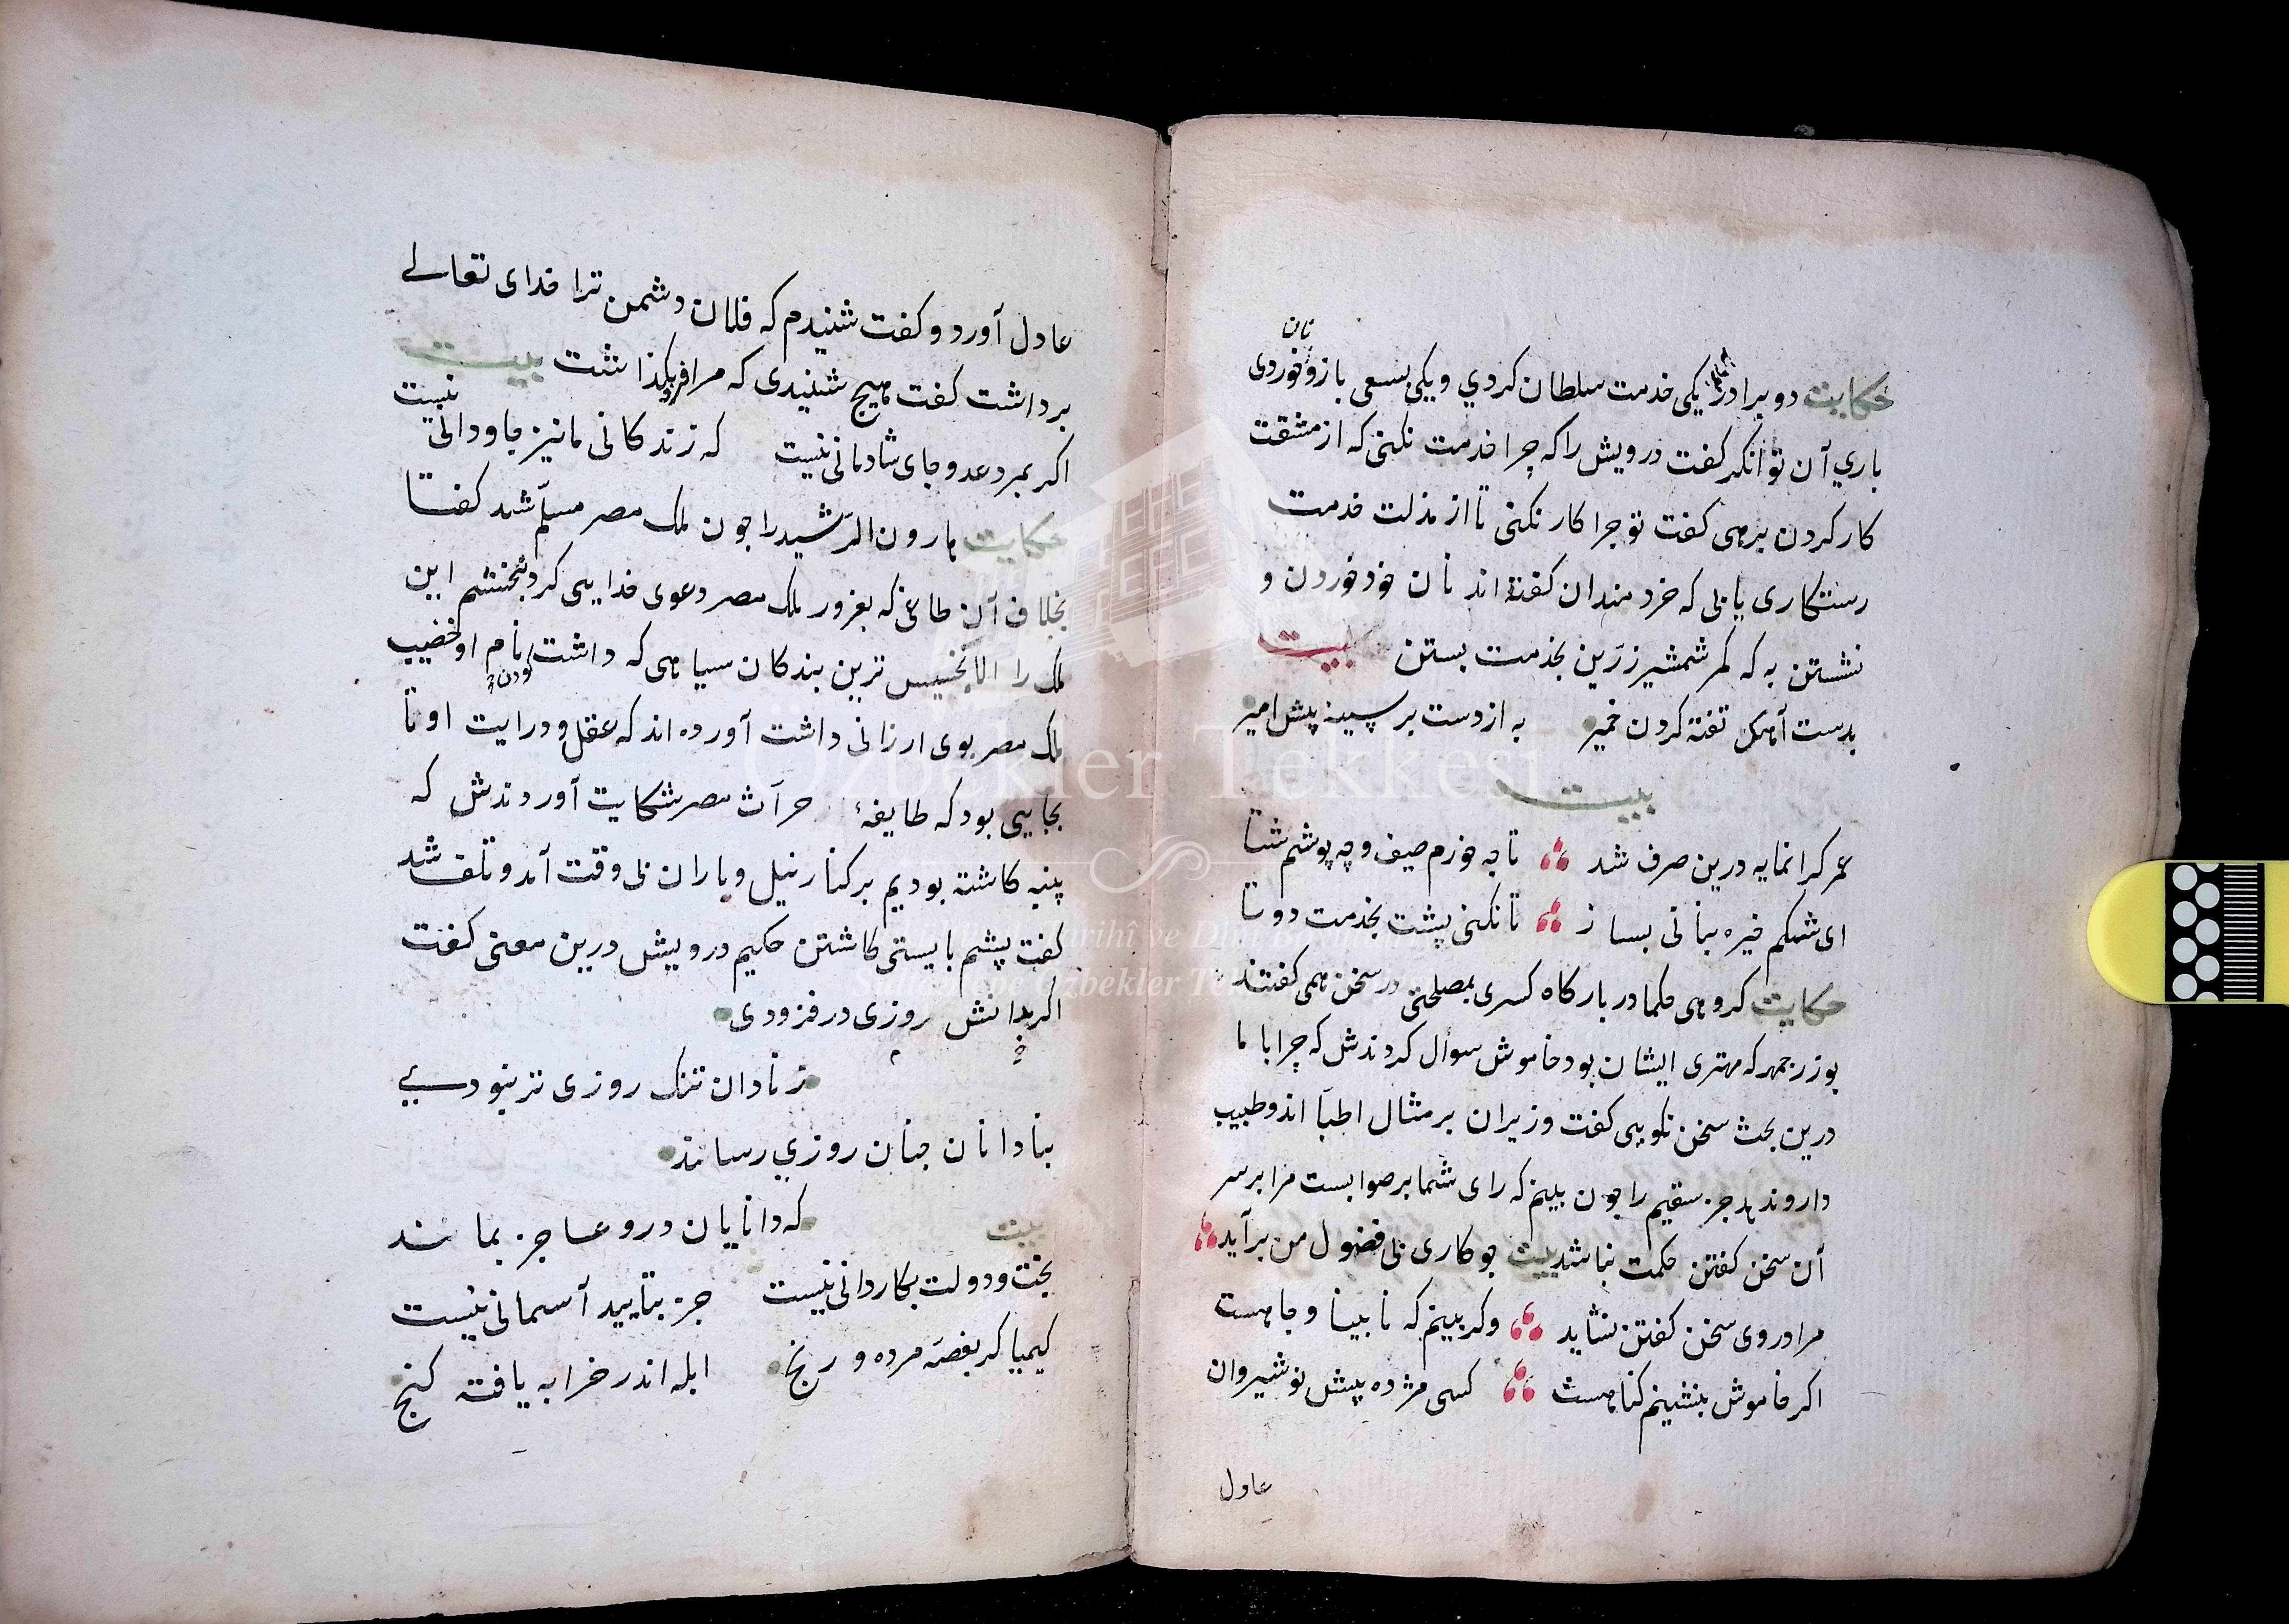 نان
حکایت دو برادر یکی خدمت سلطان کردي ویکی بسعی بازو خوردی
باري آن توانکر کفت درویش را که چرا خدمت نکنی که از مشقت
کار کردن برهی کفت تو چرا کار نکنی تا از مذلت خدمت
رستکاری یابی که خردمندان کفته اند نان خود خوردن و
نشستن به که کمر شمشیر زرّین بخدمت بستن بیت
بدست آهک تفته کردن خمیر به از دست بر سینه پیش امیر
بیت
عمر کرانمایه درین صرف شد تا چه خورم صیف و چه پوشم شتا
ای شکم خیره بنانی بساز تا نکنی پشت بخدمت دوتا
حکایت کروهی حکما در بارکاه کسری بمصلحتی در سخن همی کفتند
بوزرجمهر که مهتری ایشان بود خاموش سوأل کردندش که چرا با ما
درین بحث سخن نکویی کفت وزیران بر مثال اطبّا اند وطبیب
دارو ندهد جز سقیم را جون بینم که رای شما بر صوابست مرا بر سر
آن سخن کفتن حکمت نباشد بیت جو کاری بی فضول من برآید
مرا در وی سخن کفتن نشاید وکر بینم که نابینا و جاهست
اکر خاموش بنشینم کناهست کسی مژده پیش نوشیروان
عادل
عادل آورد و کفت شنیدم که فلان دشمن ترا خدای تعالی
برداشت کفت هیچ شنیدی که مرا فرو بکذاشت بیت
اکر بمرد عدو جای شادمانی نیست که زندکانی ما نیز جاودانی نیست
حکایت هارون الرّشید را جون ملک مصر مسلّم شد کفتا
بخلاف آن طاغی که بغرور ملک مصر دعوی خدایی کرد نبخشم این
ملک را الا بخسیس ترین بندکان سیاهی که داشت نام او خضیب
ملک مصر بوی ارزانی داشت آورده اند که عقل و درایت او تا
بجایی بود که طایفهٔ حرّاث مصر شکایت آوردندش که
پنبه کاشته بودیم بر کنار نیل و باران بی وقت آمد و تلف شد
کفت پشم بایستی کاشتن حکیم درویش درین معنی کفت
اکر بدانش روزی در فزودی
ز نادان تنک روزی تر نبودی
بنادانان جنان روزي رساند
که دانایان درو عاجز بمانند
بیت
بخت و دولت بکاردانی نیست جز بتایید آسمانی نیست
کیمیاکر بغصّه مرده و رنج ابله اندر خرابه یافته کنج